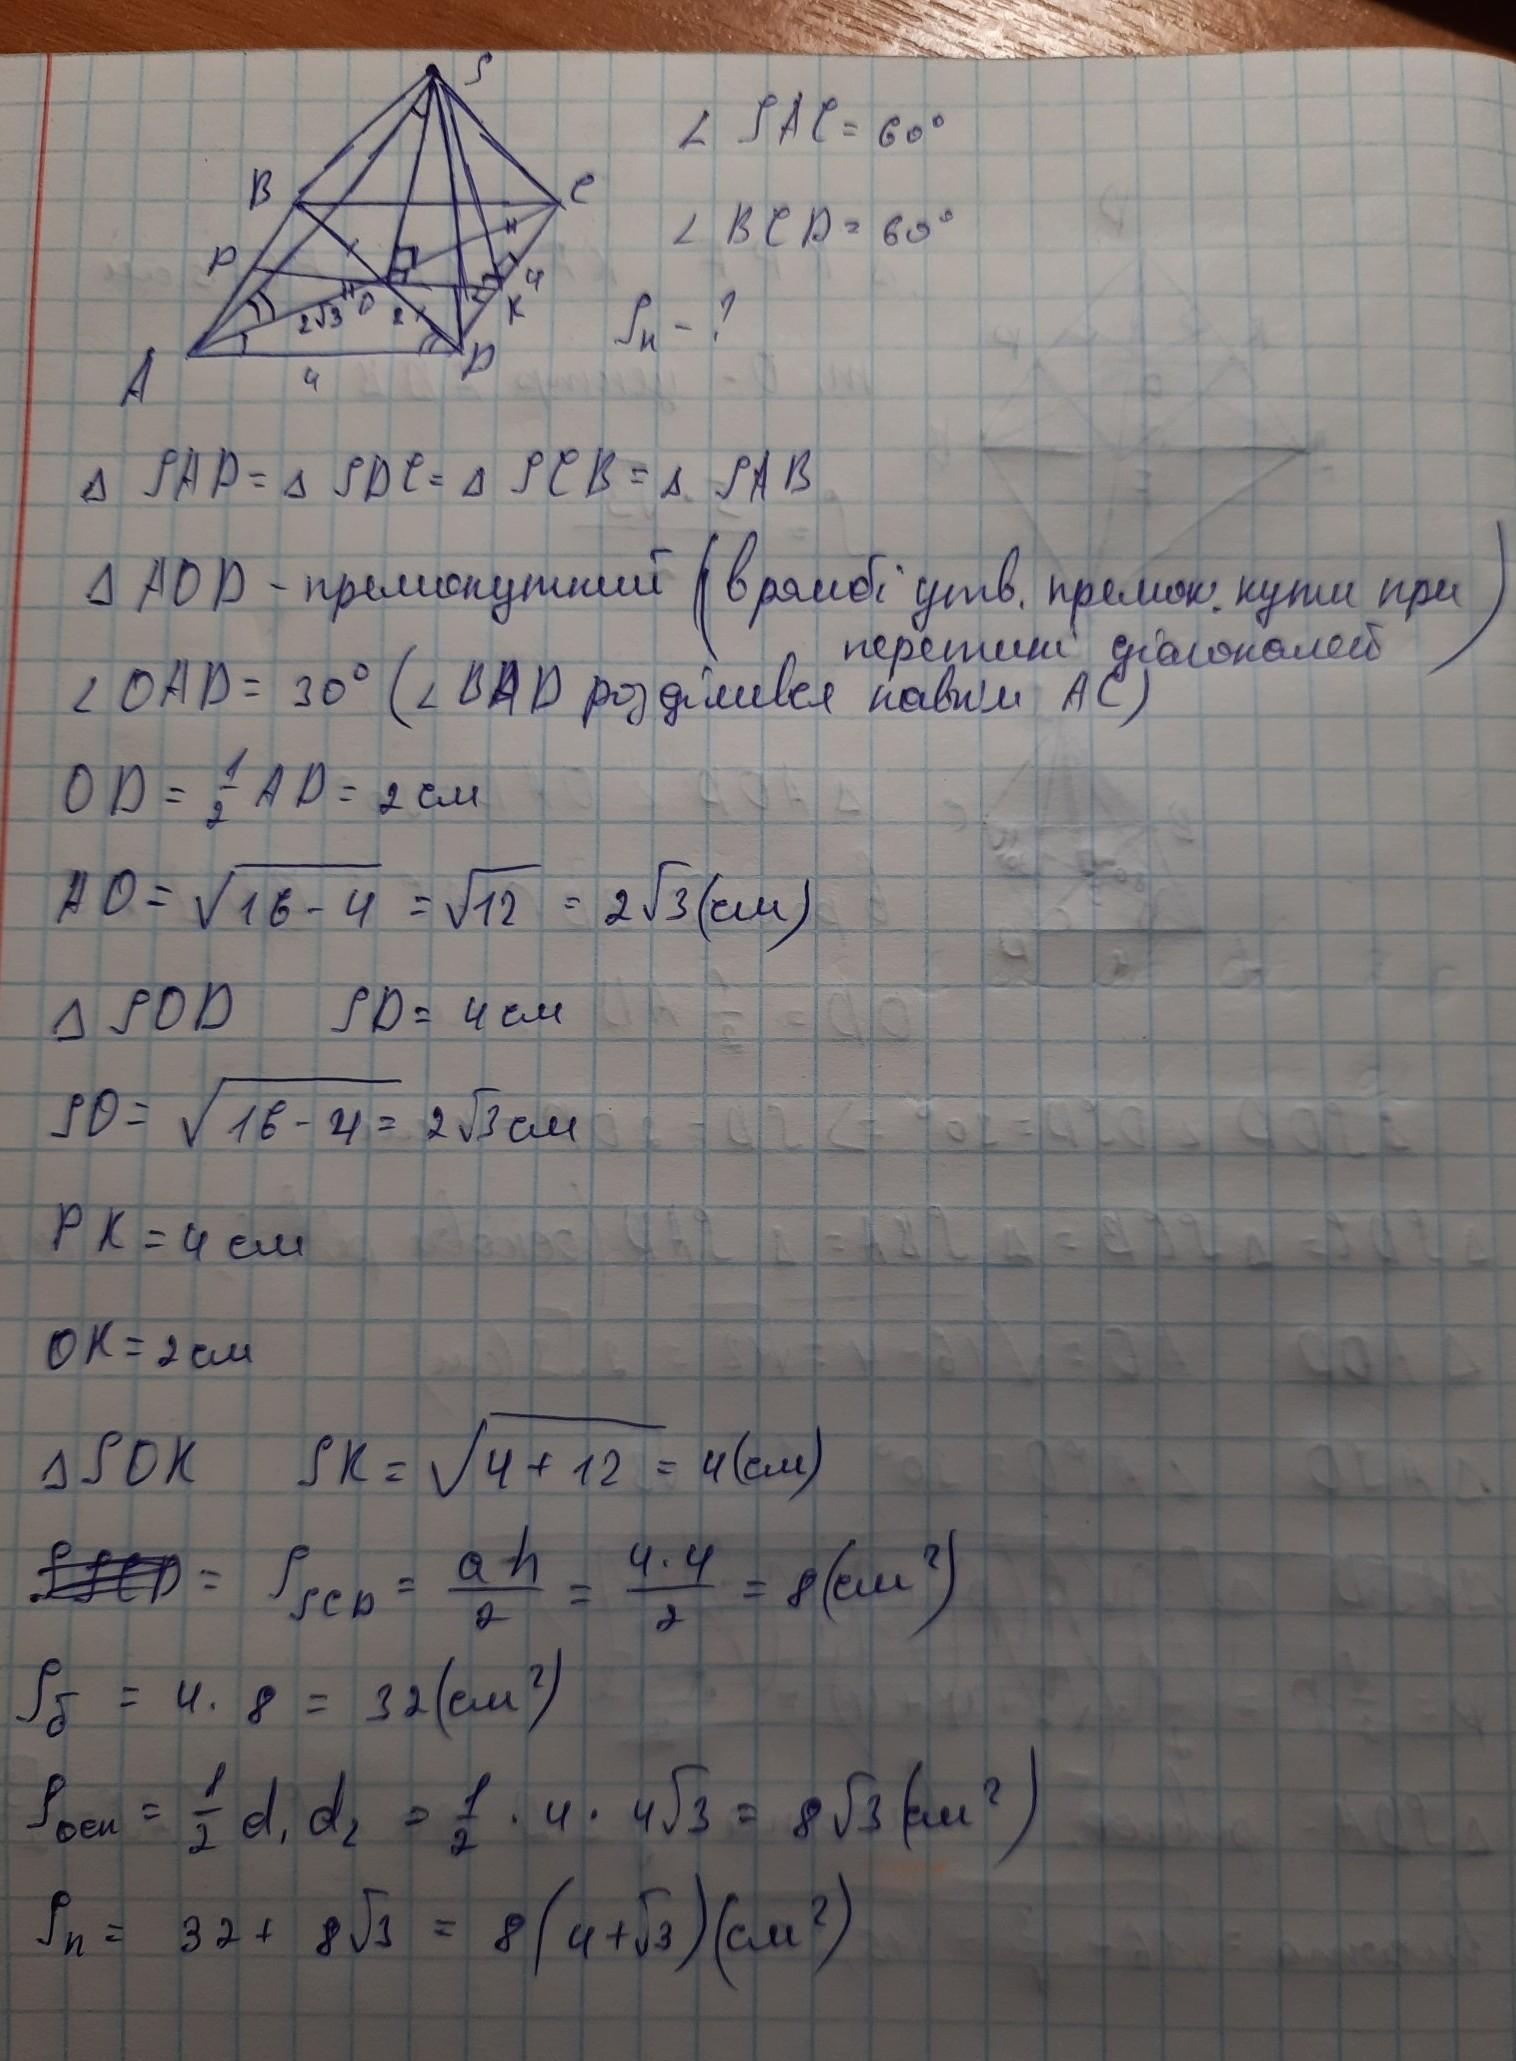 S
B
C
P
O
K
4
2√3
2
2
A
D
4
∠ SAC = 60°
∠ BCD = 60°
Sп - ?
Δ SAD = Δ SDC = Δ SCB = Δ SAB
Δ AOD - прямокутний (в ромбі утв. прямок. кути при
перетині діагоналей)
∠ OAD = 30° (∠ BAD розділився навпіл AC)
OD = 1/2 AD = 2 см
AO = √16 - 4 = √12 = 2√3 (см)
Δ SOD SD = 4 см
SO = √16 - 4 = 2√3 см
PK = 4 см
OK = 2 см
Δ SOK SK = √4 + 12 = 4 (см)
= S SCD = a h / 2 = 4 · 4 / 2 = 8 (см²)
Sб = 4 · 8 = 32 (см²)
Sосн = 1/2 d₁ d₂ = 1/2 · 4 · 4√3 = 8√3 (см²)
Sп = 32 + 8√3 = 8 (4 + √3) (см²)